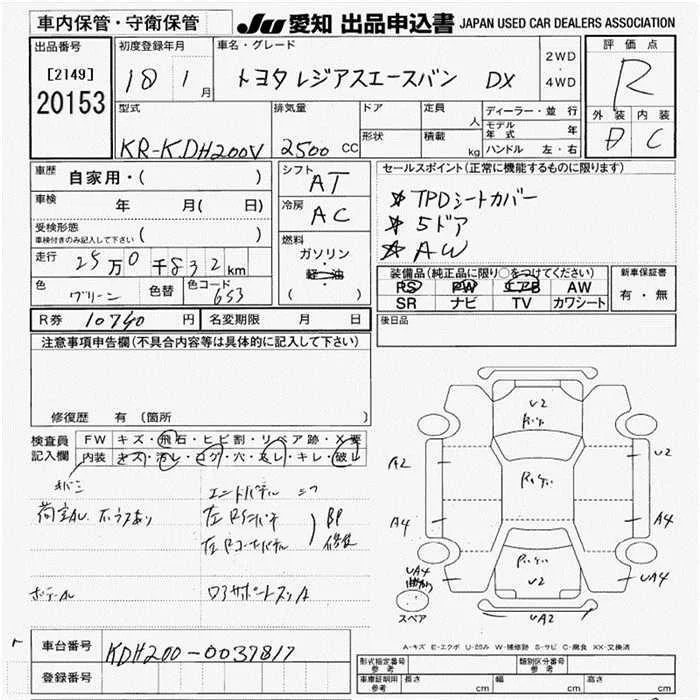 車内保管・守衛保管
JU 愛知 出品申込書 JAPAN USED CAR DEALERS ASSOCIATION
出品番号
[2149]
20153
初度登録年月
18 1月
車名・グレード
トヨタ レジアスエースバン DX
2WD
・
4WD
評価点
R
外装 内装
D C
型式
KR-KDH200V
排気量
2500 CC
ドア
形状
定員 人
積載 kg
ディーラー・並行
モデル年式 年
ハンドル 左・右
車歴 自家用・( )
車検 年 月( 日)
受検形態
車検付きのみ記入して下さい ( )
走行 25万0千832km
色 グリーン 色替 色コード 653
シフト AT
冷房 AC
燃料
ガソリン
・
軽油
・
( )
セールスポイント(正常に機能するものに限ります)
☆ TPDシートカバー
☆ 5ドア
☆ AW
装備品(純正品に限り○をつけてください)
PS PW エアB AW
SR ナビ TV カワシート
新車保証書
有・無
R券 10740 円 名変期限 月 日
後日品
注意事項申告欄(不具合内容等は具体的に記入して下さい)
修復歴 有(箇所 )
検査員記入欄
FW キズ・飛石・ヒビ割・リペア跡・X要
内装 キズ・汚レ・コゲ・穴・スレ・キレ・破レ
荷室AU
左
BP
左
修復
U2
U2
A2
U2
A4
A4
UA4
曲がり
UA4
UA2
スペア
A-キズ E-エクボ U-凹み W-補修跡 S-サビ C-腐食 XX-交換済
車台番号 KDH200-0037817
登録番号
形式指定番号 参考
類別区分番号 参考
車庫証明用 参考 長さ cm 幅 cm 高さ cm